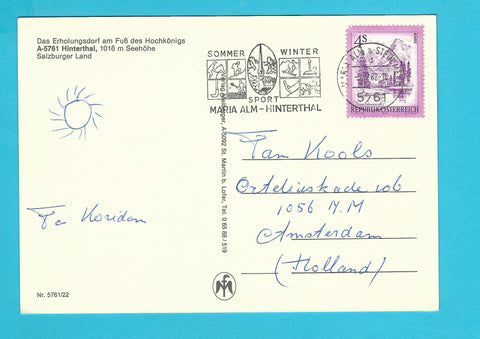 Das Erholungsdorf am Fuß des Hochkönigs
A-5761 Hinterthal, 1016 m Seehöhe
Salzburger Land
SOMMER WINTER
SPORT
MARIA ALM - HINTERTHAL
4S
5761
REPUBLIK ÖSTERREICH
A-5092 St. Martin b. Lofer, Tel. 0 65 88 / 519
Fam Kools
Orteliuskade 106
1056 N.M
Amsterdam
(Holland)
Nr. 5761/22